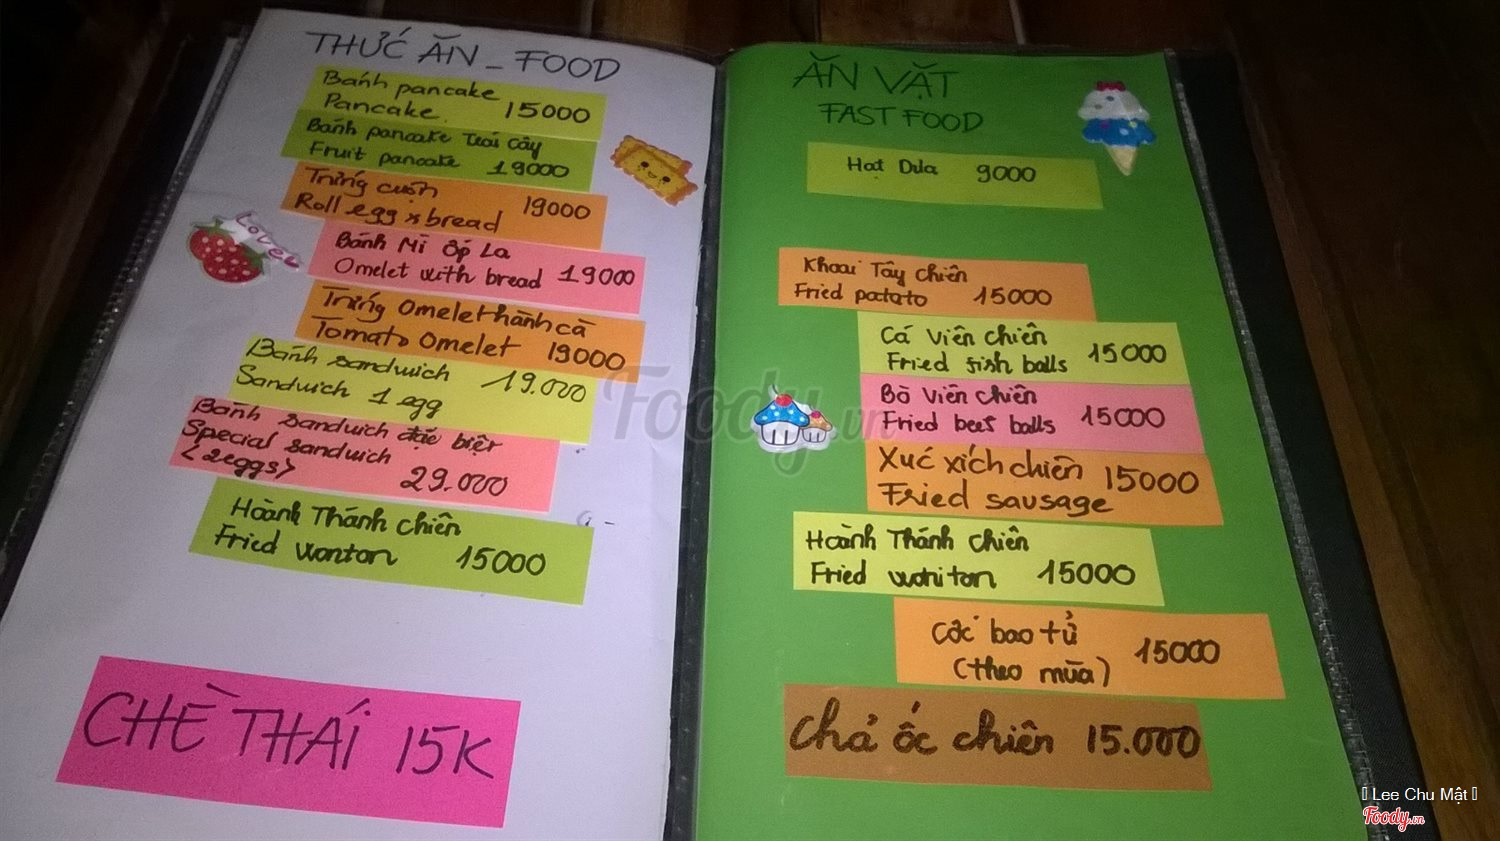 THỨC ĂN _ FOOD
Bánh pancake
Pancake 15000
Bánh pancake trái cây
Fruit pancake 19000
Trứng cuộn
Roll egg x bread 19000
Bánh Mì ốp La
Omelet with bread 19000
Trứng Omelet hành cà
Tomato Omelet 19000
Bánh sandwich
Sandwich 1 egg 19.000
Bánh sandwich đặc biệt
Special sandwich
<2eggs> 29.000
Hoành Thánh chiên
Fried wonton 15000
CHÈ THÁI 15K
ĂN VẶT
FAST FOOD
Hạt Dưa 9000
Khoai Tây chiên
Fried patato 15000
Cá viên chiên
Fried fish balls 15000
Bò viên chiên
Fried beef balls 15000
Xúc xích chiên
Fried sausage 15000
Hoành Thánh chiên
Fried wonton 15000
Cóc bao tử
(theo mùa) 15000
Chả ốc chiên 15.000
Lovel
Foody.vn
Lee Chu Mật
Foody.vn